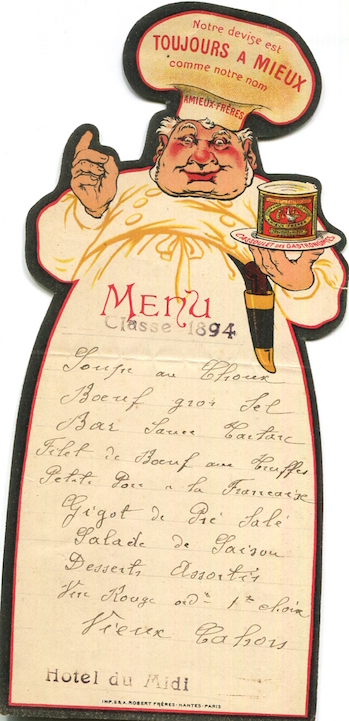 Notre devise est
TOUJOURS A MIEUX
comme notre nom
AMIEUX-FRÈRES
CASSOULET DES GASTRONOMES
MENU
Classe 1894
Soupe au Choux
Bœuf gros Sel
Bar Sauce Tartare
Filet de Bœuf aux Truffes
Petits Pois a la Francaise
Gigot de Pré Salé
Salade de Saison
Desserts Assortis
Vin Rouge ord^re 1^er choix
Vieux Cahors
Hotel du Midi
IMP. S.R.A. ROBERT FRÈRES-NANTES-PARIS